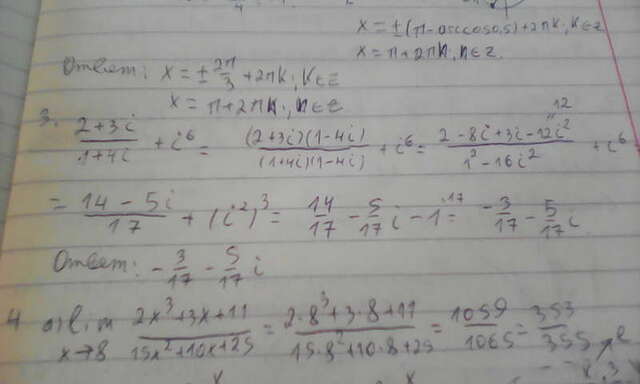 x = ±(π-arccos0,5)+2πk, k∈z
x = π+2πn, n∈z.
Ответ: x = ± 2π/3 + 2πk, k∈z
x = π+2πn, n∈z
12
3. (2+3i)/(1+4i) + i^6 = ((2+3i)(1-4i))/((1+4i)(1-4i)) + i^6 = (2-8i+3i-12i^2)/(1^2-16i^2) + i^6
= (14-5i)/17 + (i^2)^3 = 14/17 - 5/17 i - 1^17 = -3/17 - 5/17 i
Ответ: -3/17 - 5/17 i
4 lim x→8 (2x^3+3x+11)/(15x^2+10x+25) = (2·8^3+3·8+11)/(15·8^2+10·8+25) = 1059/1065 = 353/355